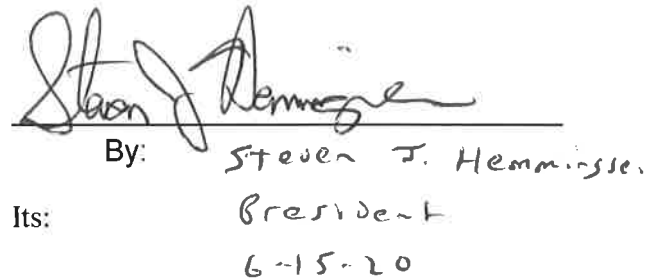 Steven J Hemmingsen
By: Steven J. Hemmingsen
Its: President
6-15-20